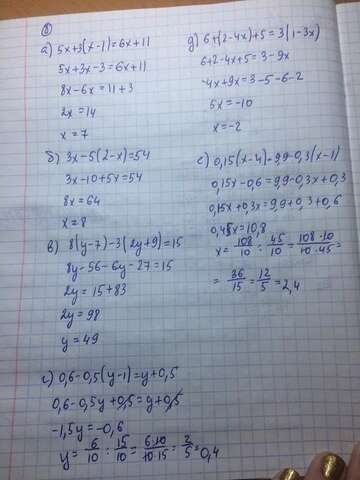 8
а) 5x+3(x-1)=6x+11
5x+3x-3=6x+11
8x-6x=11+3
2x=14
x=7
б) 3x-5(2-x)=54
3x-10+5x=54
8x=64
x=8
в) 8(y-7)-3(2y+9)=15
8y-56-6y-27=15
2y=15+83
2y=98
y=49
г) 0,6-0,5(y-1)=y+0,5
0,6-0,5y+0,5=y+0,5
-1,5y=-0,6
y=6/10:15/10=6·10/10·15=2/5=0,4
д) 6+(2-4x)+5=3(1-3x)
6+2-4x+5=3-9x
-4x+9x=3-5-6-2
5x=-10
x=-2
е) 0,15(x-4)=9,9-0,3(x-1)
0,15x-0,6=9,9-0,3x+0,3
0,15x+0,3x=9,9+0,3+0,6
0,45x=10,8
x=108/10:45/10=108·10/10·45=
=36/15=12/5=2,4